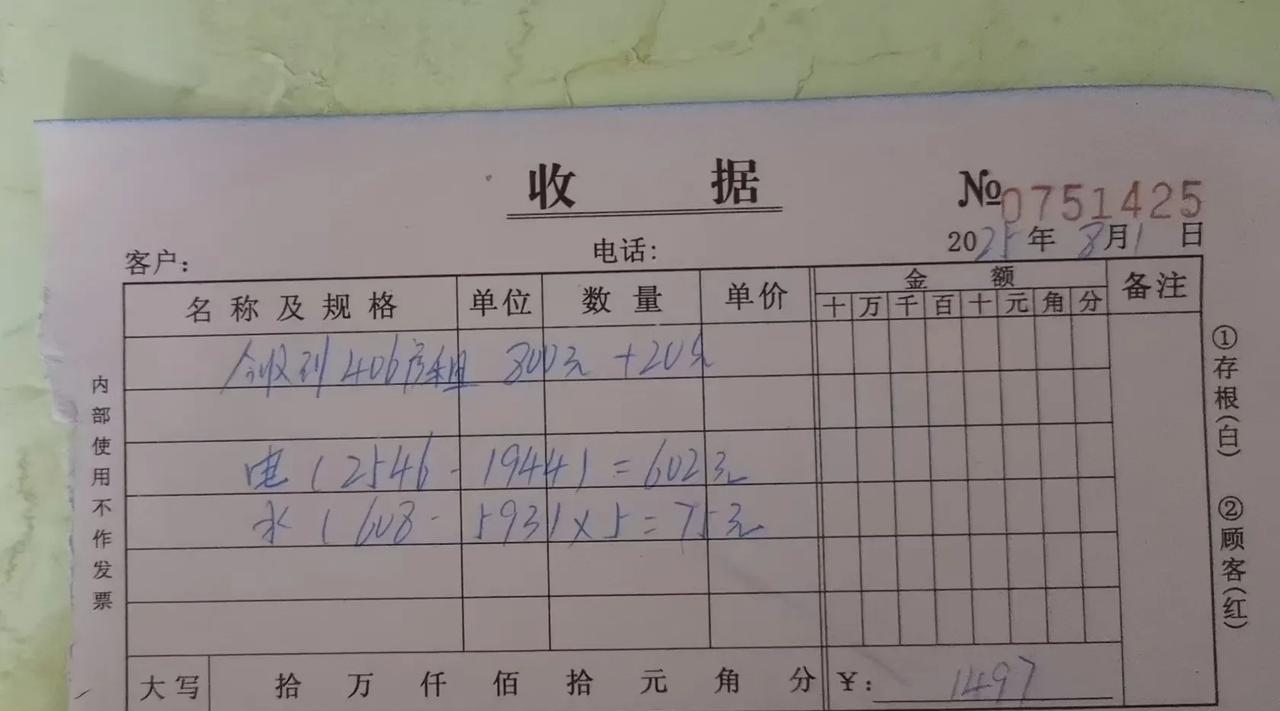 收 据
№0751425
客户： 电话： 2025年8月1日
名称及规格 单位 数量 单价 金额 备注
十 万 千 百 十 元 角 分
今收到406房租 800元 +20元
电(2546-1944)=602元
水(608-593)×5=75元
大写 拾 万 仟 佰 拾 元 角 分 ¥：1497
内部使用不作发票
①存根(白) ②顾客(红)